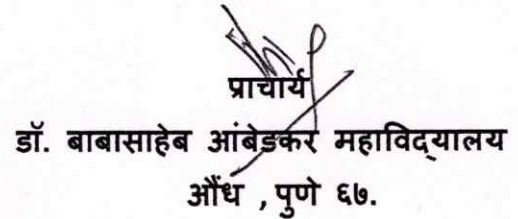 प्राचार्य
डॉ. बाबासाहेब आंबेडकर महाविद्यालय
औंध , पुणे ६७.